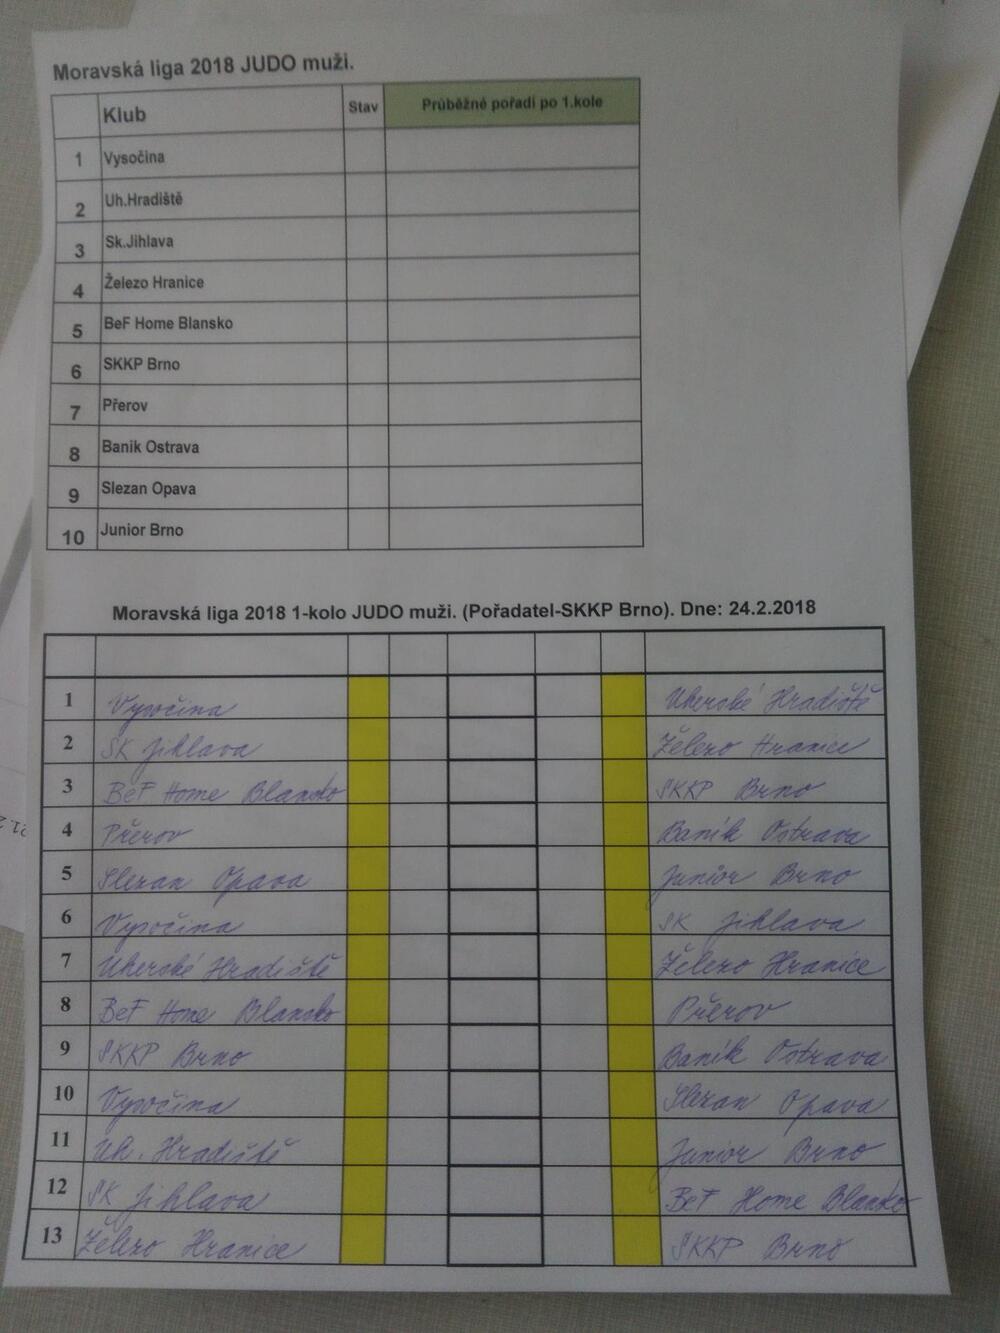 Moravská liga 2018 JUDO muži.
Klub Stav Průběžné pořadí po 1.kole
1 Vysočina
2 Uh.Hradiště
3 Sk.Jihlava
4 Železo Hranice
5 BeF Home Blansko
6 SKKP Brno
7 Přerov
8 Banik Ostrava
9 Slezan Opava
10 Junior Brno
Moravská liga 2018 1-kolo JUDO muži. (Pořadatel-SKKP Brno). Dne: 24.2.2018
1 Vysočina Uherské Hradiště
2 SK Jihlava Železo Hranice
3 BeF Home Blansko SKKP Brno
4 Přerov Baník Ostrava
5 Slezan Opava Junior Brno
6 Vysočina SK Jihlava
7 Uherské Hradiště Železo Hranice
8 BeF Home Blansko Přerov
9 SKKP Brno Baník Ostrava
10 Vysočina Slezan Opava
11 Uh. Hradiště Junior Brno
12 SK Jihlava BeF Home Blansko
13 Železo Hranice SKKP Brno